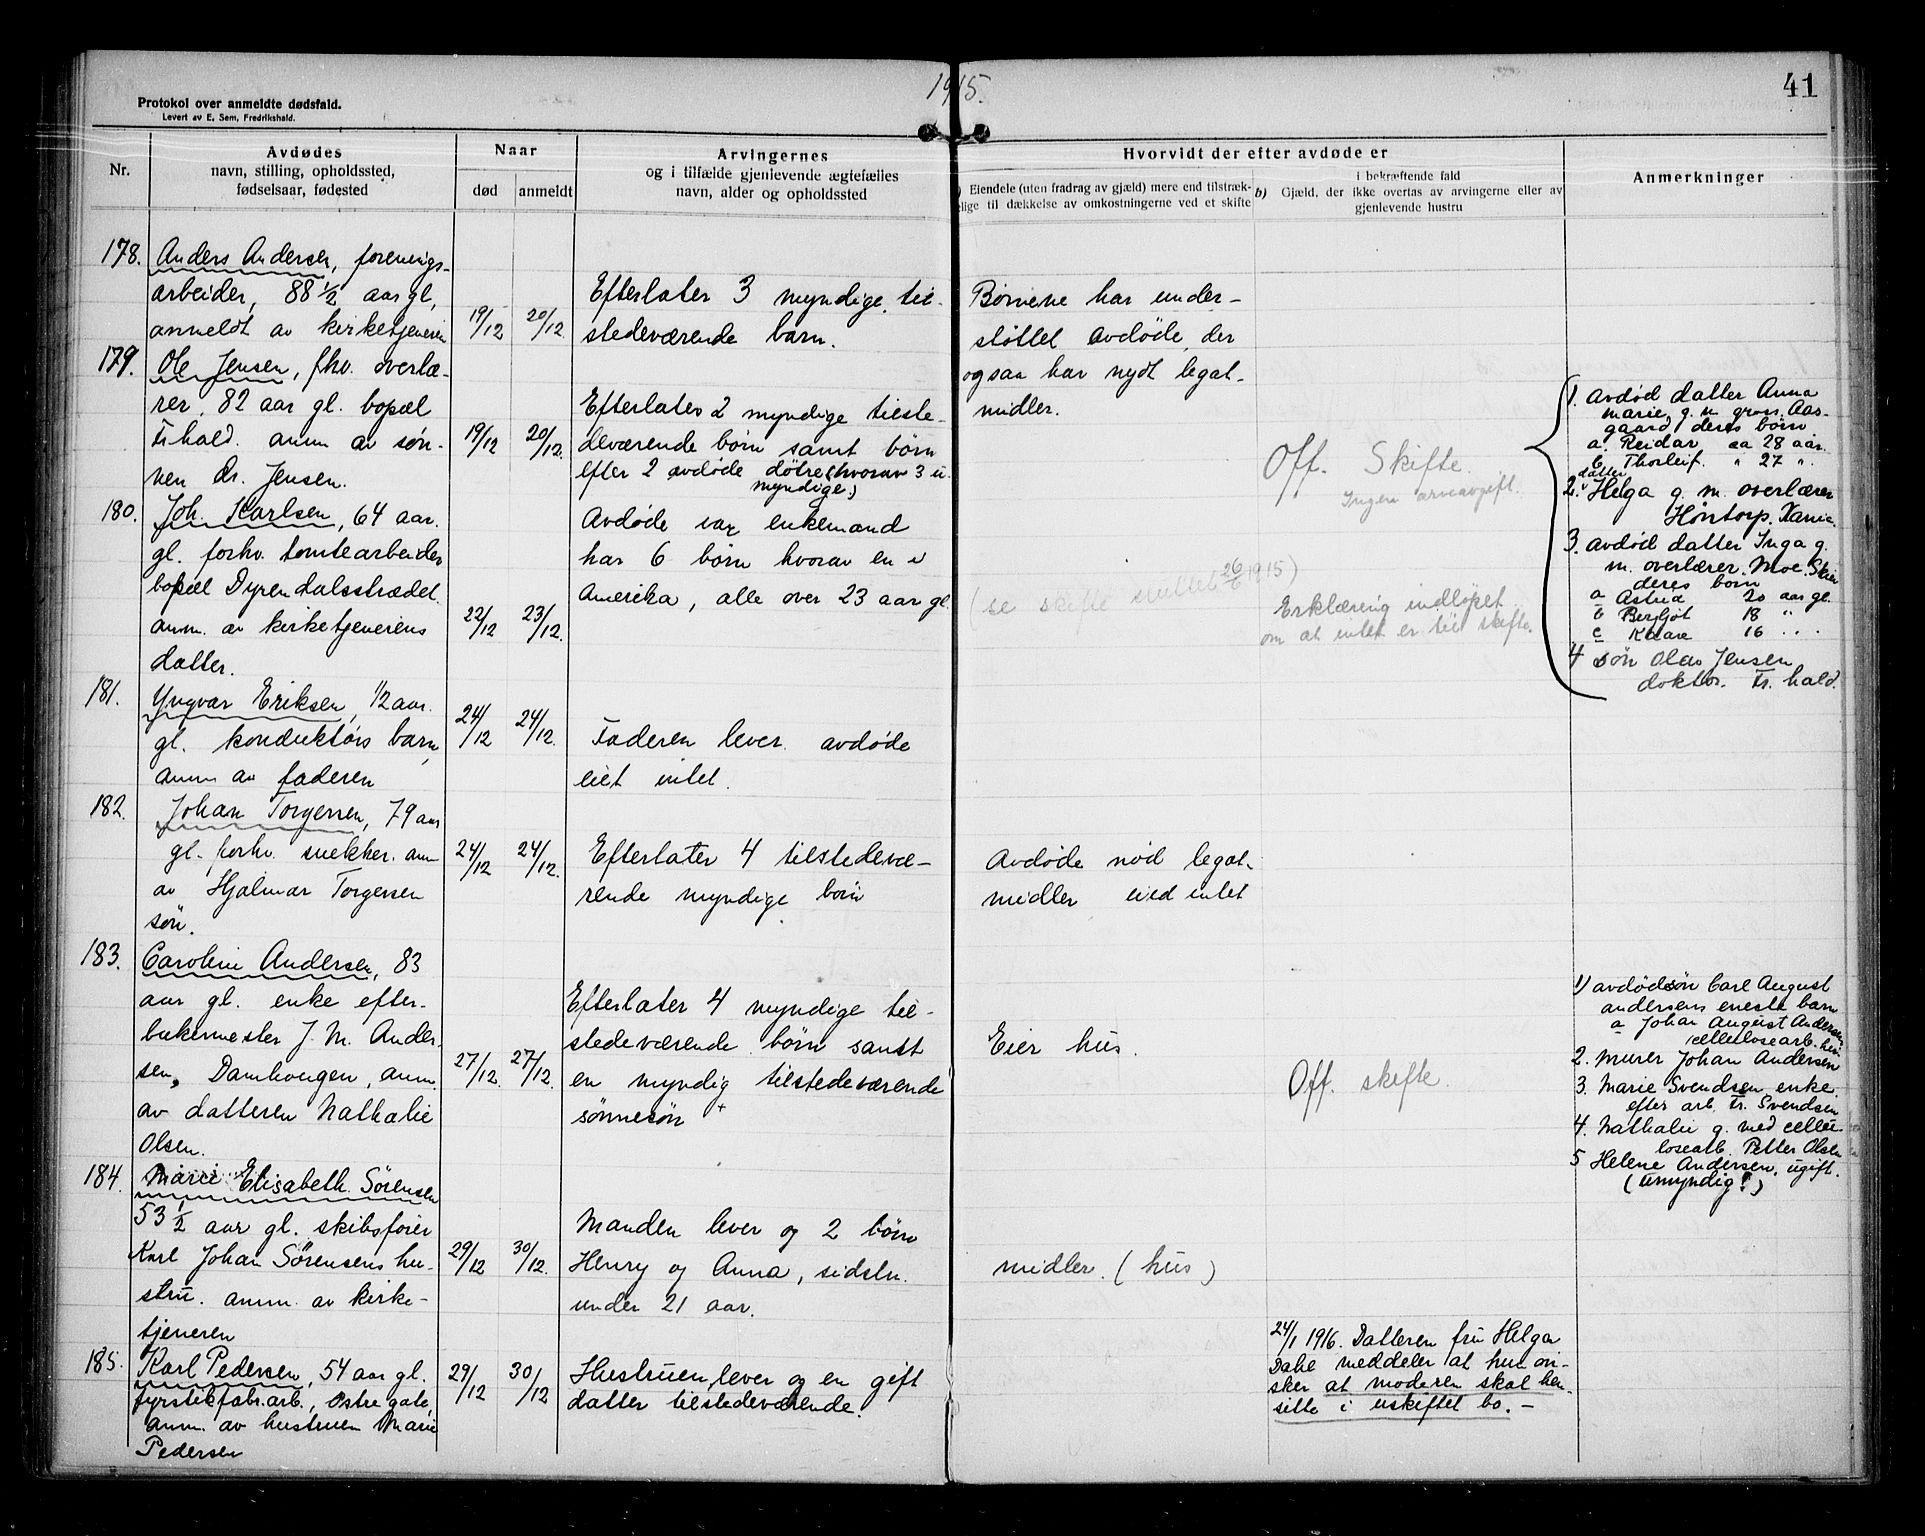 1915.
41
Protokol over anmeldte dødsfald.
Levert av E. Sem, Fredrikshald.
Nr.
Avdødes
navn, stilling, opholdssted,
fødselsaar, fødested
Naar
død
anmeldt
Arvingernes
og i tilfælde gjenlevende ægtefælles
navn, alder og opholdssted
Hvorvidt der efter avdøde er
Eiendele (uten fradrag av gjæld) mere end tilstræk-
kelige til dækkelse av omkostningerne ved et skifte
i bekræftende fald
b) Gjæld, der ikke overtas av arvingerne eller av
gjenlevende hustru
Anmerkninger
178.
Anders Andersen, forenings-
arbeider, 88 1/2 aar gl,
anmeldt av kirketjeneren
19/12
20/12.
Efterlater 3 myndige til-
stedeværende barn.
Børnene har under-
støttet avdøde, der
ogsaa har nydt legat-
midler.
179.
Ole Jensen, fhv. overlæ-
rer, 82 aar gl. bopæl
Fr.hald. anm av søn-
nen dr. Jensen.
19/12
20/12.
Efterlater 2 myndige tilste-
deværende børn samt børn
efter 2 avdøde døtre (hvorav 3 u
myndige.)
Off. Skifte.
Ingen arveavgift.
1. Avdød datter Anna
Marie g. m gros. Aas-
gaard, deres børn
a. Reidar ca 28 aar.
b Thorleif. " 27 ".
2. datter Helga g. m. overlærer
Høntorp,
3. avdød datter Inga g.
m. overlærer. Moe. Skien
deres børn
a Astrid 20 aar gl.
b Bergljot 18 "
c Kaare 16 "
4 søn Olav Jensen
doktor. Fr. hald.
180.
Joh. Karlsen, 64 aar.
gl. forhv. tomtearbeider
bopæl Dyrendalsstrædet.
anm. av kirketjenerens
datter.
22/12
23/12.
Avdøde var enkemand
har 6 børn hvorav en i
Amerika, alle over 23 aar gl.
(se skifte sluttet 26/6 1915)
Erklæring indløpet
om at intet er til skifte.
181.
Yngvar Eriksen, 1/2 aar.
gl. konduktørs barn,
anm av faderen
24/12
24/12.
Faderen lever. avdøde
eiet intet.
182.
Johan Torgersen, 79 aar
gl. forhv. snekker. anm
av Hjalmar Torgersen
søn.
24/12
24/12.
Efterlater 4 tilstedevæ-
rende myndige børn
Avdøde nød legat-
midler eied intet
183.
Caroline Andersen, 83
aar gl. enke efter-
bakermester J. M. Ander-
sen, Damhaugen, anm.
av datteren Nathalie
Olsen.
27/12.
27/12.
Efterlater 4 myndige til-
stedeværende børn samt
en myndig tilstedeværende
sønnesøn +
Eier hus.
Off. skifte.
1) avdød søn Carl August
Andersens eneste barn
a Johan August Andersen
cellulosearb. her
2. Murer Johan Andersen
3. Marie Svendsen enke
efter arb. Fr. Svendsen
4. Nathalie g. med cellu-
losearb. Petter Olsen
5 Helene Andersen, ugift.
(umyndig!)
184.
Marie Elisabeth Sørensen
53 1/2 aar gl. skibsfører
Karl Johan Sørensens hu-
stru. anm. av kirke-
tjeneren
29/12
30/12.
Manden lever og 2 børn
Henry og Anna, sidstn.
under 21 aar.
midler. (hus)
185.
Karl Pedersen, 54 aar gl.
fyrstikfabr.arb., Østre gate,
anm. av hustruen Marie
Pedersen
29/12
30/12
Hustruen lever og en gift
datter tilstedeværende.
24/1 1916. Datteren fru Helga
Dahl meddeler at hun øn-
sker at moderen skal hen-
sitte i uskiftet bo. -